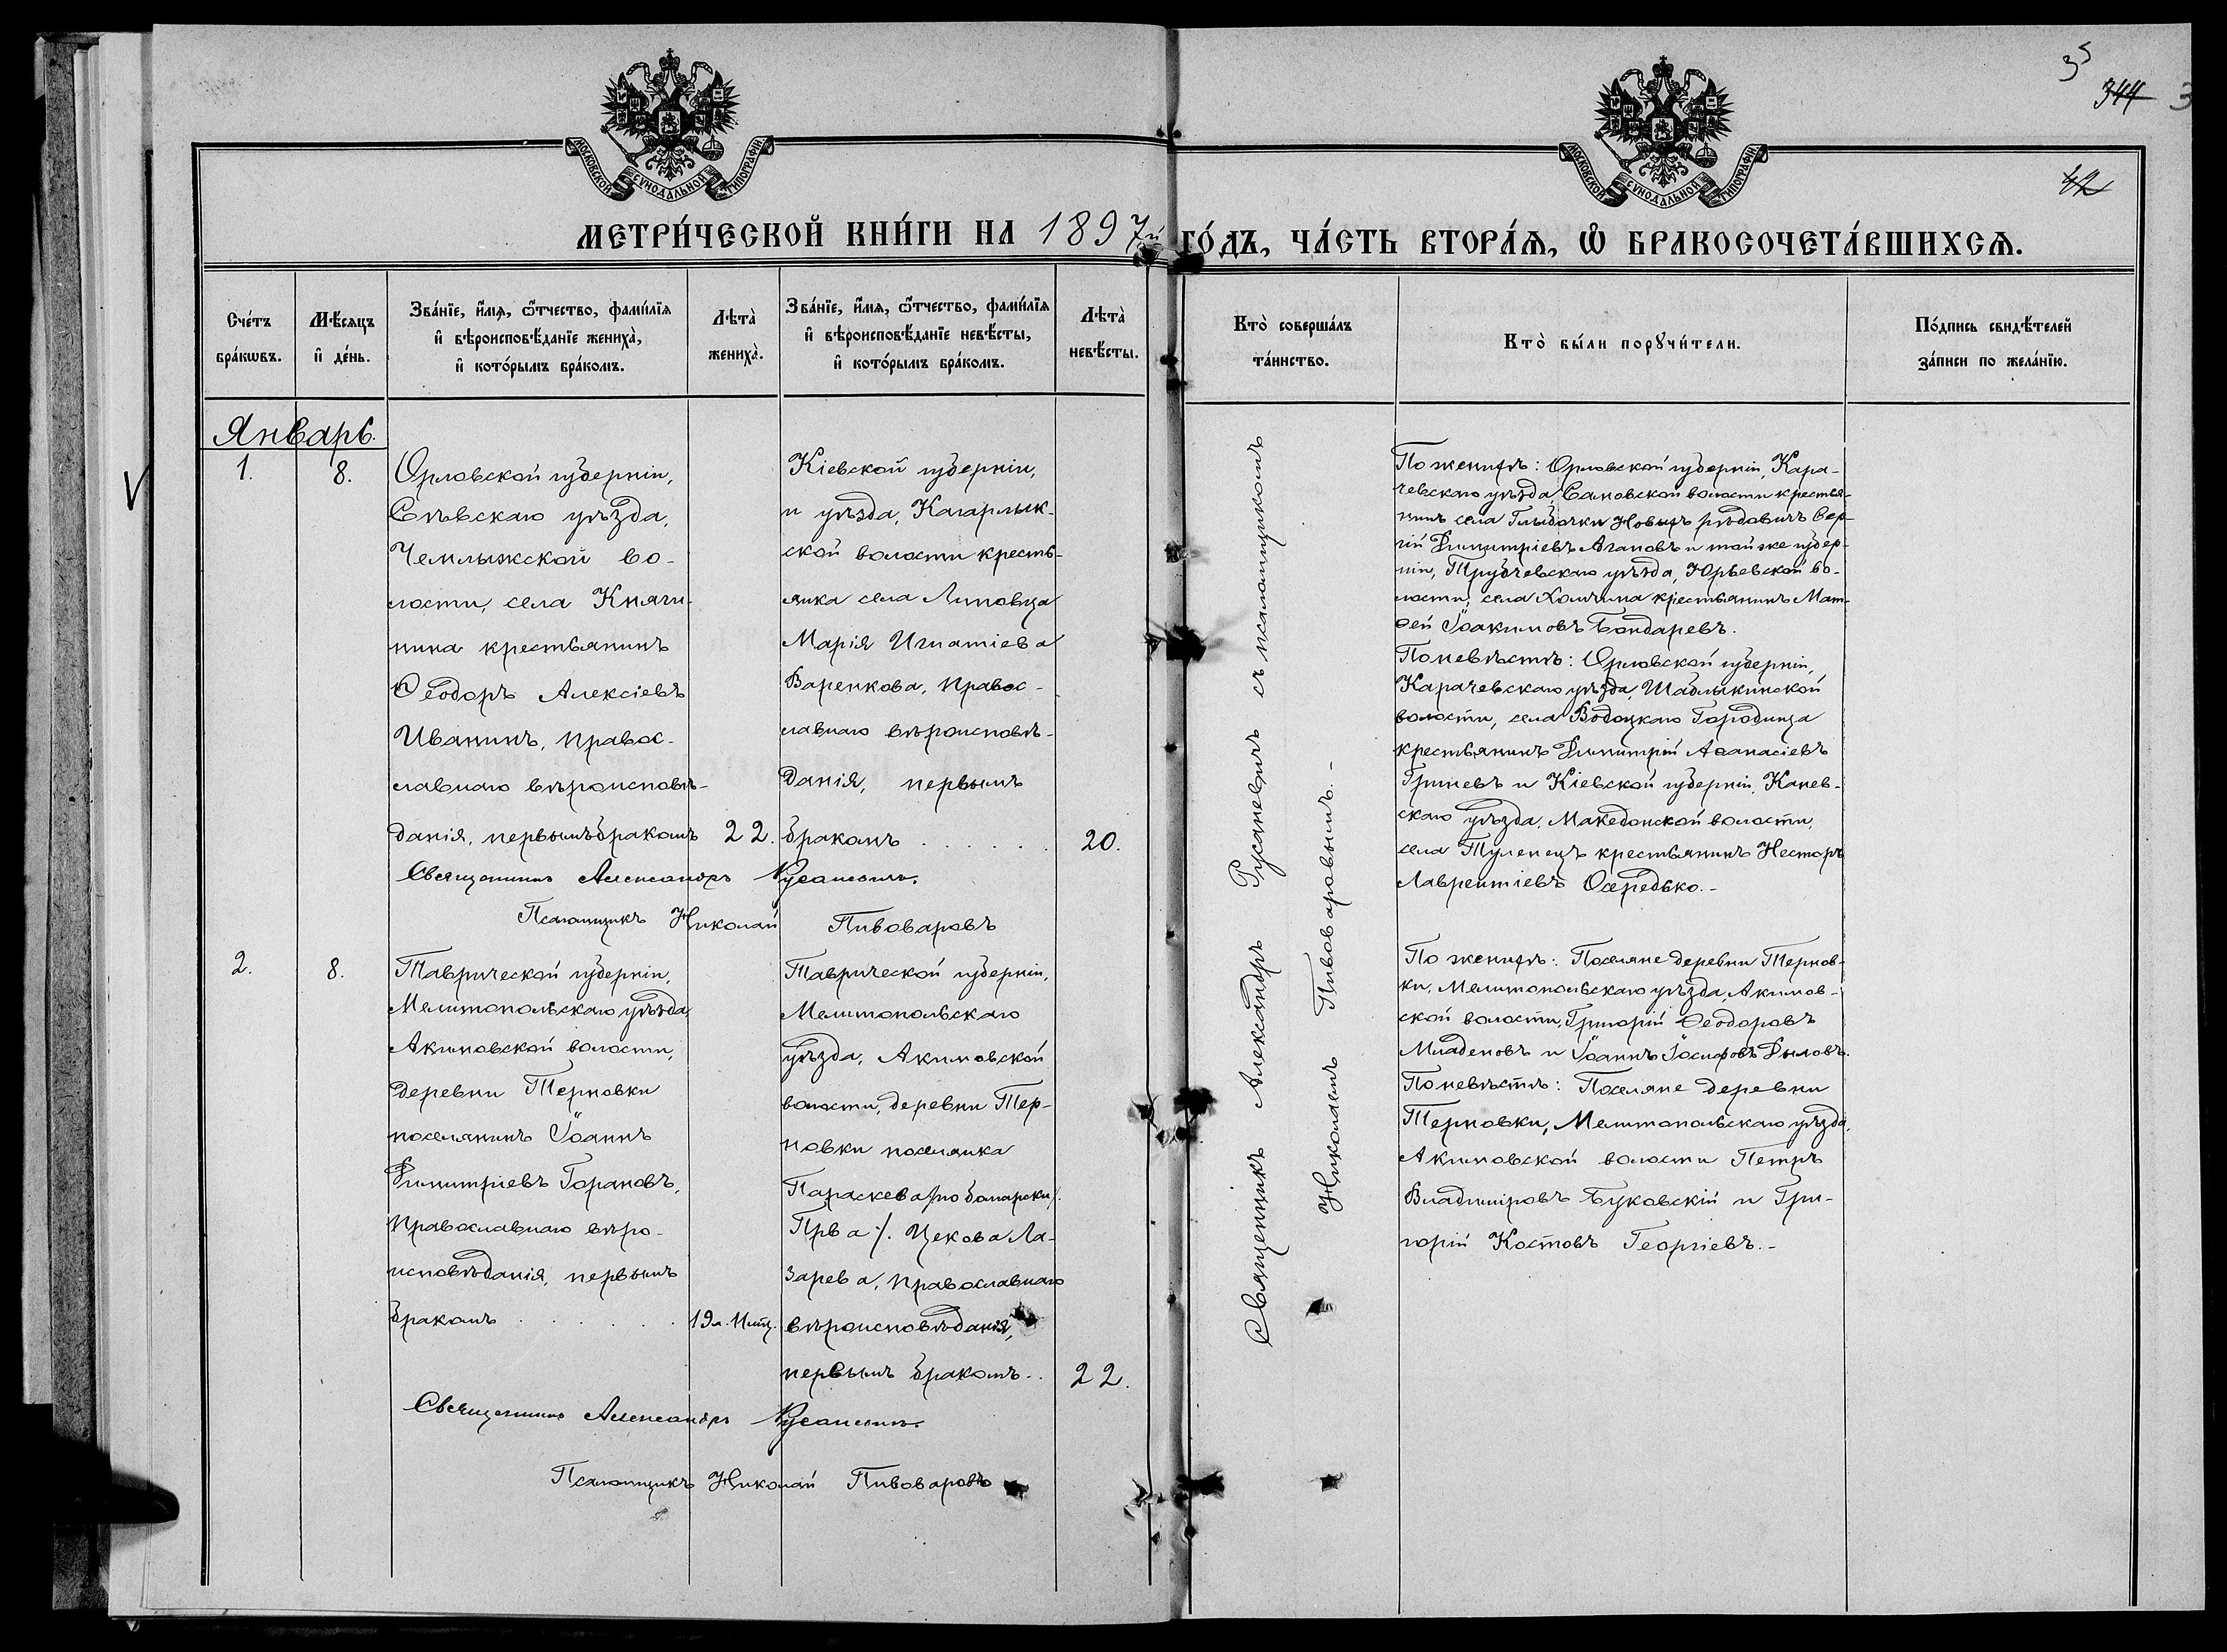 35
344 3
42
МОСКОВСКОЙ СѴНОДАЛЬНОЙ ТИПОГРАФІИ
МОСКОВСКОЙ СѴНОДАЛЬНОЙ ТИПОГРАФІИ
МЕТРИ́ЧЕСКОЙ КНИ́ГИ НА 1897й ГО́ДЪ, ЧА́СТЬ ВТОРА́Ѧ, Ѡ҆ БРАКОСОЧЕТА́ВШИХСѦ.
Сче́тъ
бра́кѡвъ.
Мѣ́сяцъ
и҆ де́нь.
Зва́нїе, и҆́мѧ, ѻ҆́тчество, фами́лїѧ
и҆ вѣроисповѣ́данїе жениха̀,
и҆ кото́рымъ бра́комъ.
Лѣта̀
жениха̀.
Зва́нїе, и҆́мѧ, ѻ҆́тчество, фами́лїѧ
и҆ вѣроисповѣ́данїе невѣ́сты,
и҆ кото́рымъ бра́комъ.
Лѣта̀
невѣ́сты.
Кто̀ соверша́лъ
та́инство.
Кто̀ бы́ли порꙋчи́тели.
По́дпись свидѣ́телей
за́писи по жела́нїю.
Январь.
V
1.
8.
Орловской губерніи,
Сѣвскаго уѣзда,
Чемлыжской во-
лости, села Княги-
нина крестьянинъ
Ѳеодоръ Алексіевъ
Иванинъ, правос-
лавнаго вѣроисповѣ-
данія, первымъ бракомъ
22.
Кіевской губерніи,
и уѣзда, Кагарлык-
ской волости кресть-
янка села Липовца
Марія Игнатіева
Варенкова, правос-
лавнаго вѣроисповѣ-
данія, первымъ
бракомъ . . . . . .
20.
Священникъ Александръ Русаневичъ.
Псаломщикъ Николай Пивоваровъ
Священникъ Александръ Русаневичъ съ псаломщикомъ
Николаемъ Пивоваровымъ.-
По женихѣ: Орловской губерніи, Кара-
чевскаго уѣзда, волости крестья-
нинъ села Глыбочки Сер-
гій Димитріевъ Агаповъ и той же губер-
ніи, Трубчевскаго уѣзда, Юрьевской во-
лости, села крестьянинъ Мат-
ѳей Іоакимовъ Бондаревъ.
По невѣстѣ: Орловской губерніи,
Карачевскаго уѣзда, Шаблыкинской
волости, села Водоцкаго Городища
крестьянинъ Димитрій Аѳанасіевъ
Гриневъ и Кіевской губерніи, Канев-
скаго уѣзда, Македонской волости,
села Тулинецъ крестьянинъ Несторъ
Лаврентіевъ Осередько.-
2.
8.
Таврической губерніи,
Мелитопольскаго уѣзда,
Акимовской волости,
деревни Терновки
поселянинъ Іоаннъ
Димитріевъ Горановъ,
православнаго вѣро-
исповѣданія, первымъ
бракомъ . . . . . .
19л. 11мц.
Таврической губерніи,
Мелитопольскаго
уѣзда, Акимовской
волости, деревни Тер-
новки поселянка
Параскева /по болгарски/.
Прва /. Цекова Ла-
зарева, православнаго
вѣроисповѣданія,
первымъ бракомъ..
22.
Священникъ Александръ Русаневичъ.
Псаломщикъ Николай Пивоваровъ
По женихѣ: Поселяне деревни Тернов-
ки, Мелитопольскаго уѣзда, Акимов-
ской волости, Григорій Ѳеодоровъ
Младеновъ и Іоаннъ Іосифовъ Дыловъ.
По невѣстѣ: Поселяне деревни
Терновки, Мелитопольскаго уѣзда,
Акимовской волости Петръ
Владиміровъ Буковскій и Гри-
горій Костовъ Георгіевъ.-